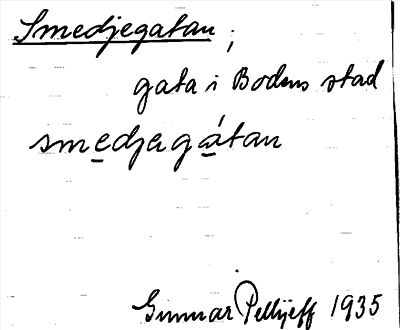 Smedjegatan;
gata i Bodens stad
smedjegátan
Gunnar Pellijeff 1935